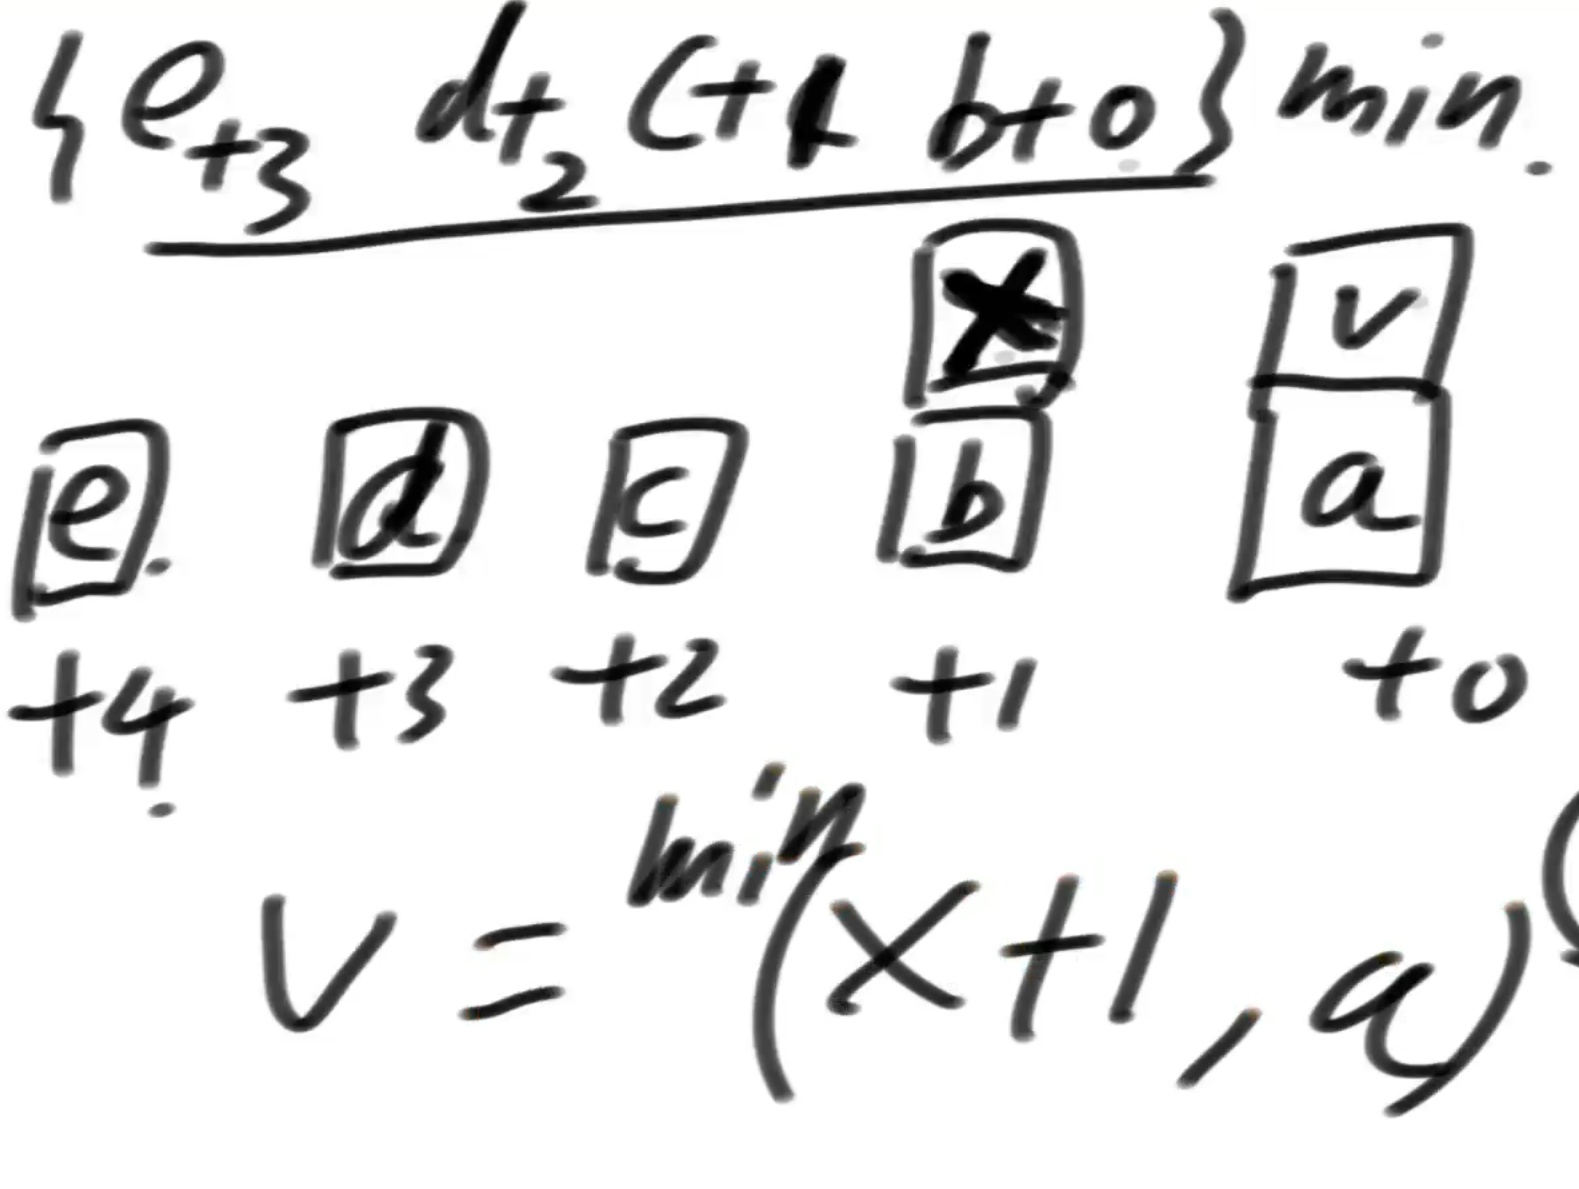 {e+3 d+2 c+1 b+0} min.
x v
e d c b a
+4 +3 +2 +1 +0
v = min(x+1, a)